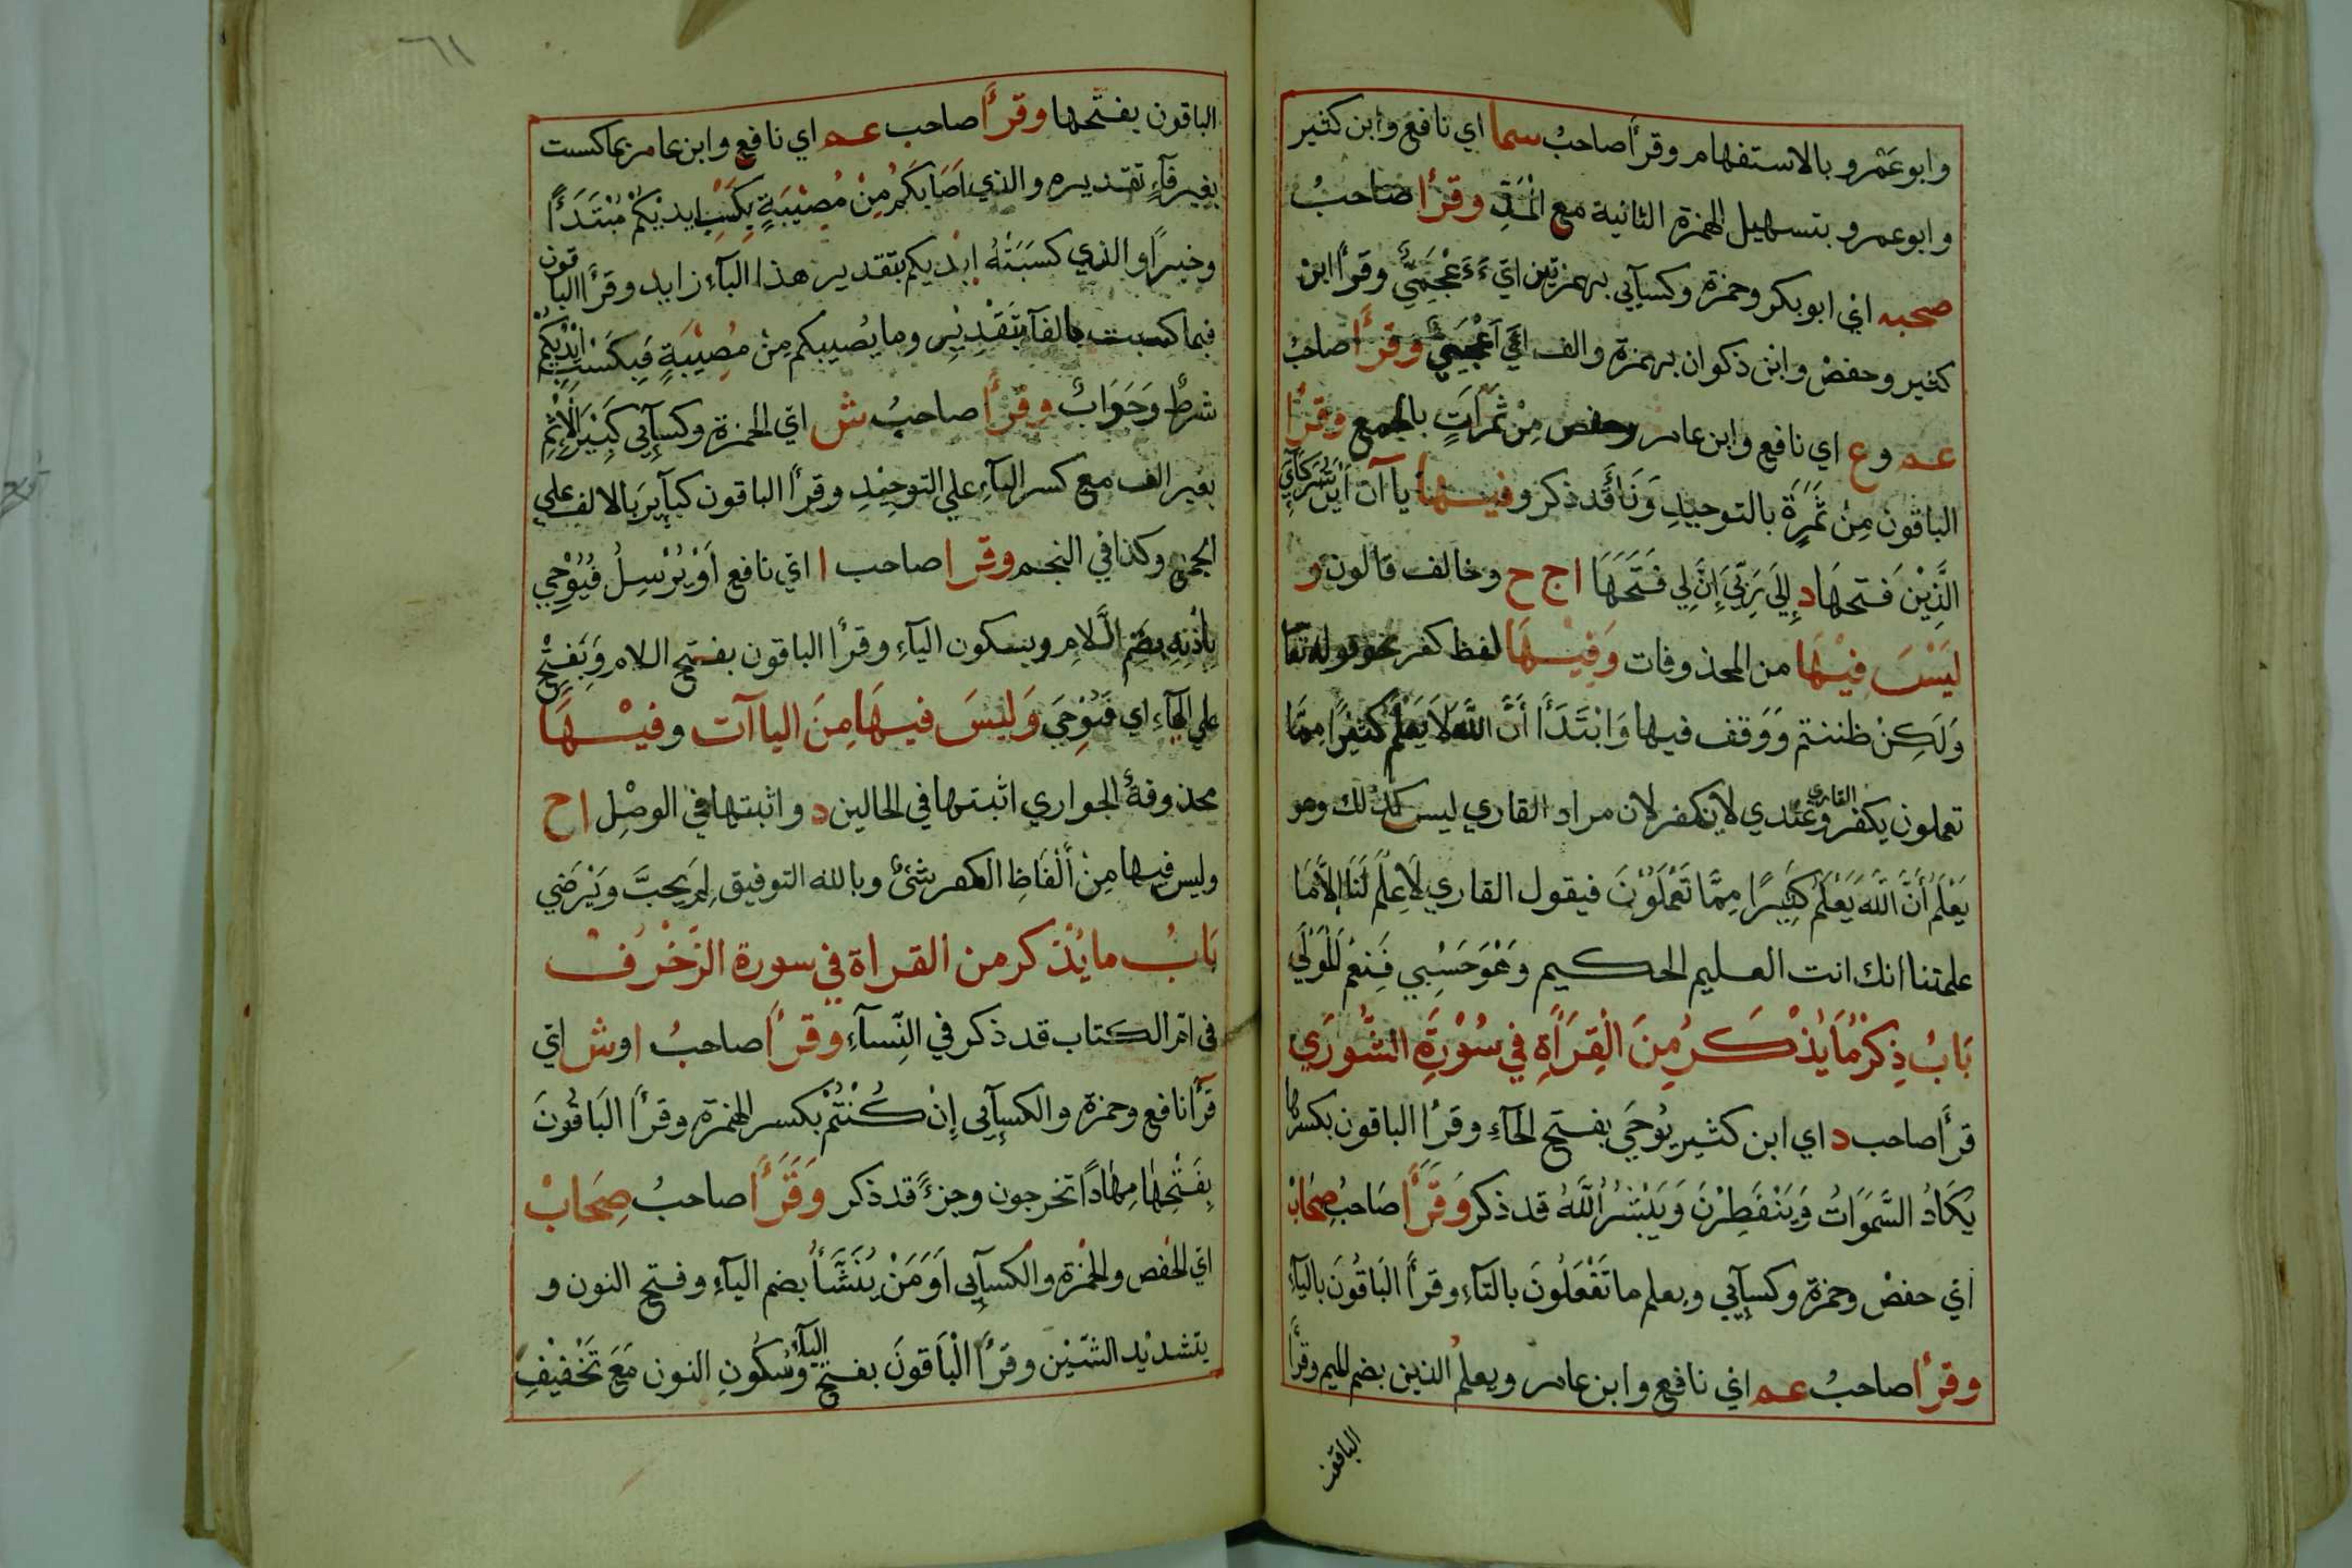 وابو عَمْرو بالاستفهام وقرأ صاحبُ سما اي نافع وابن كثير
وابو عمرو بتسهيل الهمزة الثانية مع المَدِّ وقرأ صَاحبُ
صحبه اي ابو بكر وحمزة وكسآيي بهمزتين اي ءَءَعْجَمِيٌّ وقرأ ابنُ
كثير وحفصْ وابن ذكوان بهمزة والف اي ءَآعْجَمِيٌّ وقرأ صاحبُ
عم و ع اي نافع وابن عامر وحفص مِنْ ثَمَرَاتٍ بالجمع وقرأ
الباقون مِنْ ثَمَرَةٍ بالتوحيدِ وَنَأَ قد ذكر وفيها ياآن أَيْنَ شُرَكَآيَ
الَّذِيْنَ فتحهَا د إِلَى رَبِّيَ إِنَّ لِي فَتَحَهَا ا ج ح وخالف قالون و
لَيْسَ فِيْهَا من المحذوفات وَفِيْهَا لفظ كفر نحو قوله تعا
وَلَكِنْ ظننتم وَوَقف فيها وَابْتَدَأَ أَنَّ اللَّهَ لَا يَعْلَمُ كَثِيْرًا مِمَّا
تعملون يكفر القاري وعندي لا يكفر لان مراد القاري ليس كذلك وهو
يَعْلَمُ أَنَّ اللَّهَ يَعْلَمُ كَثِيرًا مِمَّا تَعْمَلُوْنَ فيقول القاري لَا عِلْمَ لَنَا إِلَّا مَا
علمتنا انك انت العليم الحكيم وَهُوَ حَسْبِي فَنِعْمَ الْمَوْلَى
بَابُ ذِكْرِ مَا يُذْكَرُ مِنَ الْقِرَاةِ فِي سُوْرَةِ الشُّوْرَي
قرأ صاحب د اي ابن كثير يُوْحَي بفتح الحآءِ وقرأ الباقون بكسرها
يَكَادُ السَّمَوَاتُ وَيَنْفَطِرْنَ وَيَبْشُرُ اللَّهُ قد ذكر وَقَرَأَ صَاحبُ صِحَابْ
اي حفصْ وحمزة وكسآيي ويعلم ما تَفْعَلُونَ بالتآءِ وقرأ الْبَاقُونَ باليآءِ
وقرأ صاحبُ عم اي نافع وابن عامر ويعلمُ الذين بضم الميم وقرأ
الباقون
٦١
الباقون بفتحها وقرأ صاحب عم اي نافع وابن عامر بما كسبت
بغير فآءٍ تقديره والذي اَصَابَكُمْ مِنْ مُصِيْبَةٍ بِكَسْبِ ايديْكُمْ مُبْتَدَأً
وخبرًا والذي كَسَبَتْهُ ايديكم بتقدير هذا البآء زايد وقرأ الباقون
فبما كسبت بالفآ بتَقْدِيْرِ وما يُصيبكم مِنْ مُصِيْبَةٍ فَبِكَسْبِ اَيْدِيْكُمْ
شرطٌ وَجَوَابٌ وقرأ صاحبُ ش اي الحمزة وكسآيي كَبِيْرَ الْإِثْمِ
بغير الف مع كسر البآءِ علي التوحِيْدِ وقرأ الباقون كبآيِرَ بالالف علي
الجمع وكذا في النجم وقرأ صاحب ا اي نافع أَوْ يُرْسِلُ فَيُوْحِي
بإذْنِهِ بضَمِّ الَّلامِ وبسكون اليآءِ وقرأ الباقون بفتح اللام وَبَفتْحِ
علي اليآءِ اي فَيُوْحِيَ وَلَيْسَ فيهَا مِنَ الياآت وفيْهَا
محذوفةٌ الجواري اثبتها في الحالين د واثبتها في الوصْلِ ا ح
وليس فيها مِنْ أَلْفَاظِ الكفر شَئٌ وبالله التوفيق لِمَ يَحِبَّ وَيَرْضَي
بَابُ ما يُذكر من القراة في سورة الزُّخْرُفْ
في ام الكتاب قد ذكر في النِّسآءِ وقرأ صاحبُ ا و ش اي
قرأ نافع وحمزة والكسآيي إِنْ كُنْتُمْ بكسر الهمزة وقرأ الْبَاقُونَ
بِفَتْحِهَا مِهَادًا تخرجون وجزءً قد ذكر وَقَرَأَ صاحبُ صِحَابْ
اي الحفص والحمزة والكسآيي اَوَمَنْ يُنَشَّأُ بضم اليآءِ وفتح النون و
بتشديد الشّيْن وقرأ الْبَاقونَ بفتح اليآءِ وسُكُونِ النون مَعَ تَخْفِيْفِ